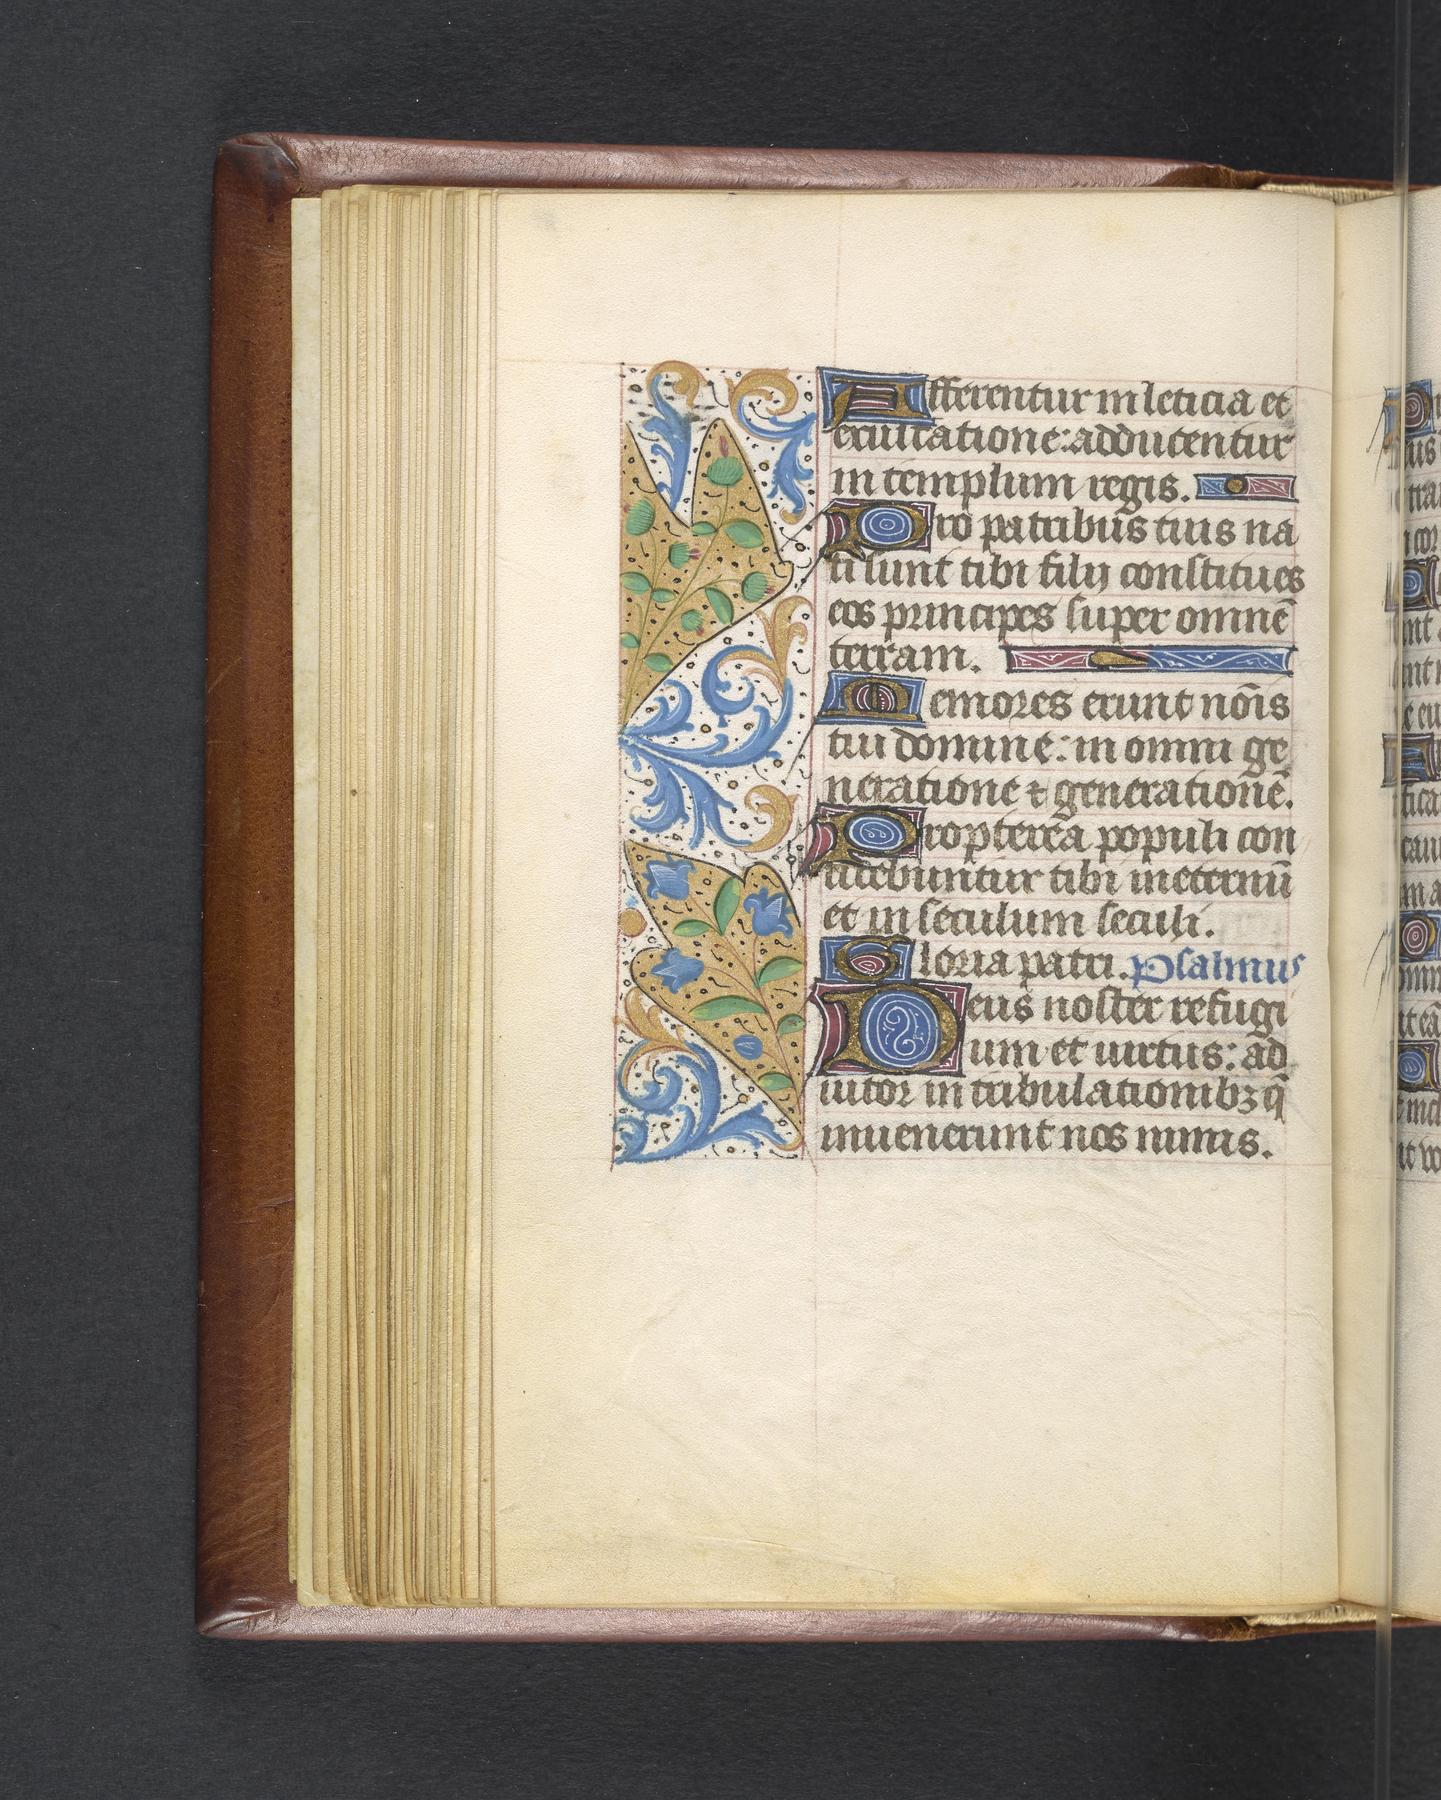 Afferentur in leticia et
exultatione: adducentur
in templum regis.
Pro patribus tuis na
ti sunt tibi filij constitues
eos principes super omnē
terram.
Memores erunt noīs
tui domine: in omni ge
neratione ⁊ generationē.
Propterea populi con
fitebuntur tibi in eternū
et in seculum seculi.
Gloria patri. Psalmus
Deus noster refugi
um et uirtus: ad
iutor in tribulationibꝫ q̄
inuenerunt nos nimis.